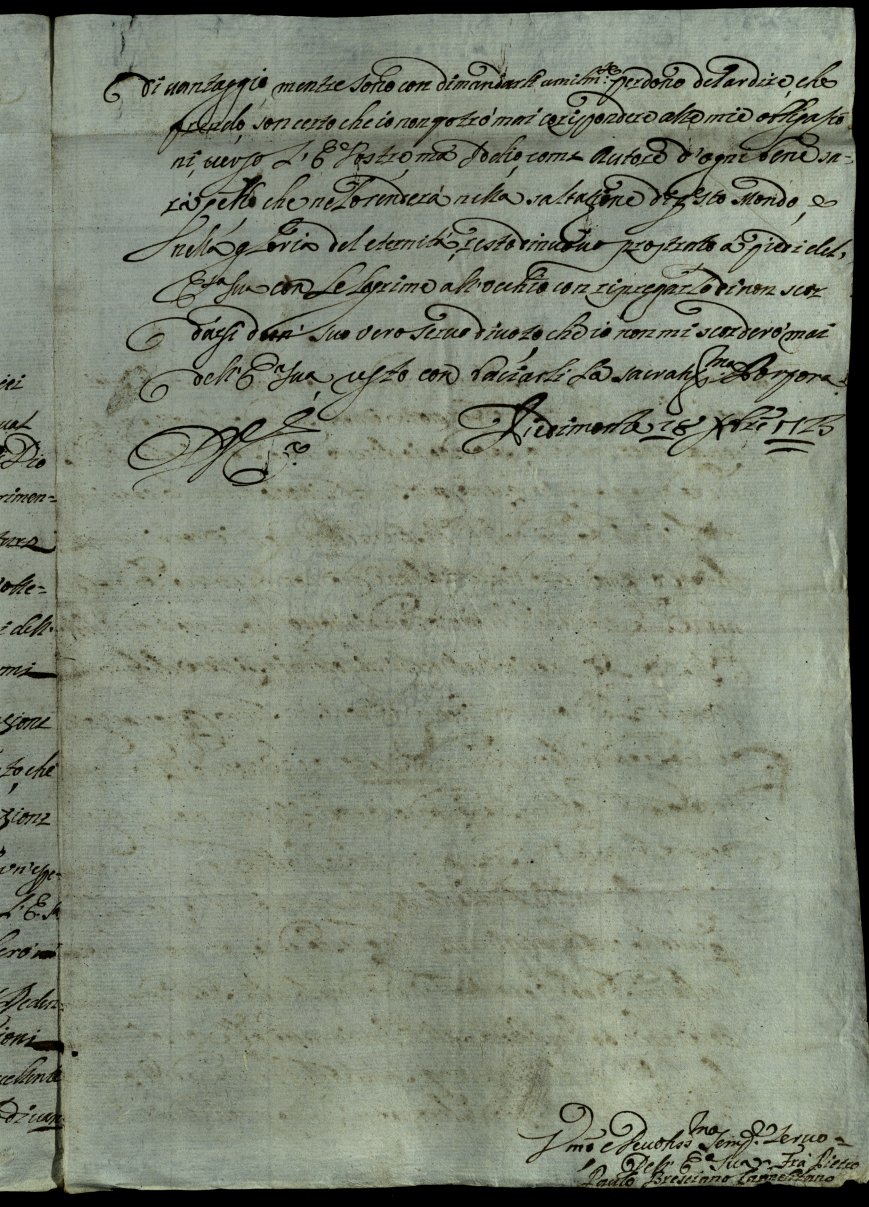 di vantaggio mentre sono con dimandarli umilm.te perdono del ardire, che
prendo, son certo che io non potrò mai corispondere alle mie obligatio
ni, verso l'E. Vostre, ma Iddio come Autore d'ogni bene sa-
rà quello che ne lo renderà nella saltazione di questo Mondo, e
nella gloria del eternità, resto di nuovo prostrato a piedi del,
E.a Sua con le lagrime all'occhio con ripregarlo di non scor
darsi d'un' suo vero servo divoto che io non mi scorderò mai
dell'E.a Sua resto con baciarli la sacratiss.ma Porpora
Piedimonte 28 Xbre 1723
Vmo e Devotiss.mo Semp. Servo
Dell'E.a Sua Fra Pietro
Paulo Bresciano Carmelitano
cei
Dio
rimen-
dell'
mi
sione
to, che
zione
L.E.S.
di van